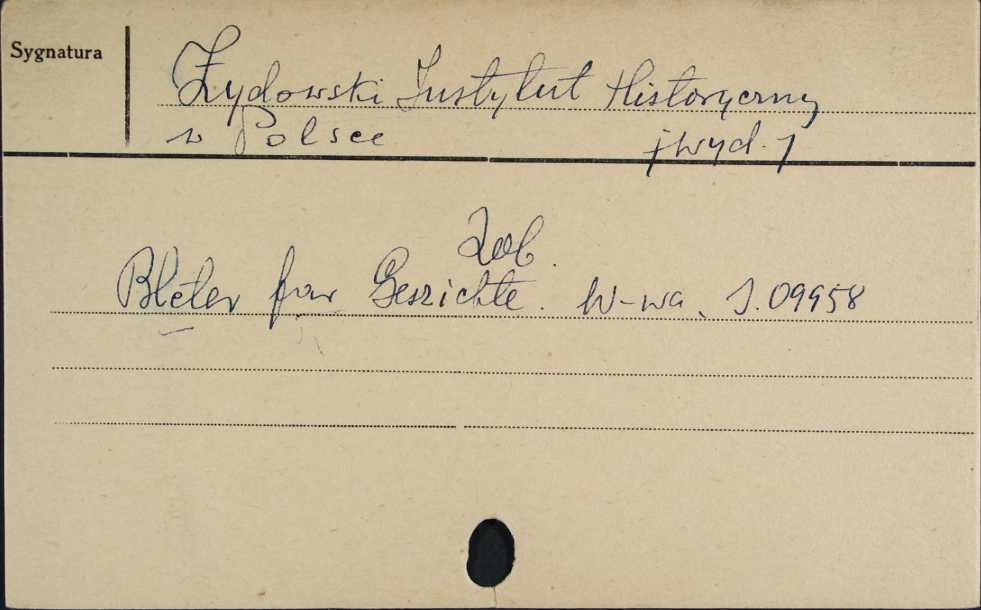 Sygnatura
Żydowski Instytut Historyczny
w Polsce /wyd./
Zob.
Bleter far Geszichte. W-wa, J.09958